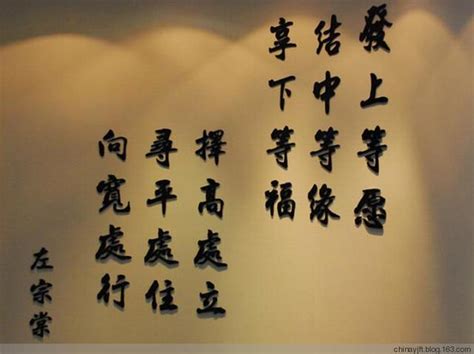 發上等愿
结中等缘
享下等福
擇高處立
尋平處住
向寬處行
左宗棠
chinayjft.blog.163.com